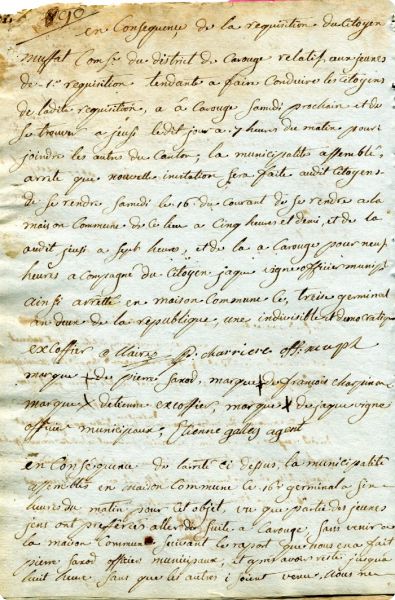 en Consequence de la requisition du Citoyen
muffat Com.re du district de Carouge relatif aux jeunes
de 1.re requisition tendante a faire Conduire les Citoyens
de ladite requisition, a Carouge Samdi prochain et de
se trouver a jusi ledit jour a 7 heures du matin pour
joindre les autres du Canton, la municipalité assemblé,
arrete que nouvelle invitation sera faite audit Citoyens
de se rendre Samedi le 16. du Courant de se rendre a la
maison Commune de Ce lieu a Cinq heures et demi, et de la
audit jusi a sept heures, et de la a Carouge pour neuf
heures acompagné du Citoyen jaque vigne officier municip
ainsi arretté en maison Commune Ce, treise germinal
an deux de la republique, une indivisible et democratique
excoffier Maire P. charriere off. municipl
marque + de pierre Savod, marque + de françois
marque X detienne excoffier, marque X de jaque vigne
officier municipaux, Etienne agent
en Consequence de larreté ci dessus, la municipalité
assemblés en maison Commune le 16.e germinal a Sin
heures du matin pour Cet objet, vu que partie des jeunes
jens ont preferés aller de Suite a Carouge, Sans venir a
la maison Commune Suivant le raport que nous en a fait
pierre Savod officier municipaux, et apres avoir resté jusqua
huit heure Sans que les autres i Soient venu, Nous ne